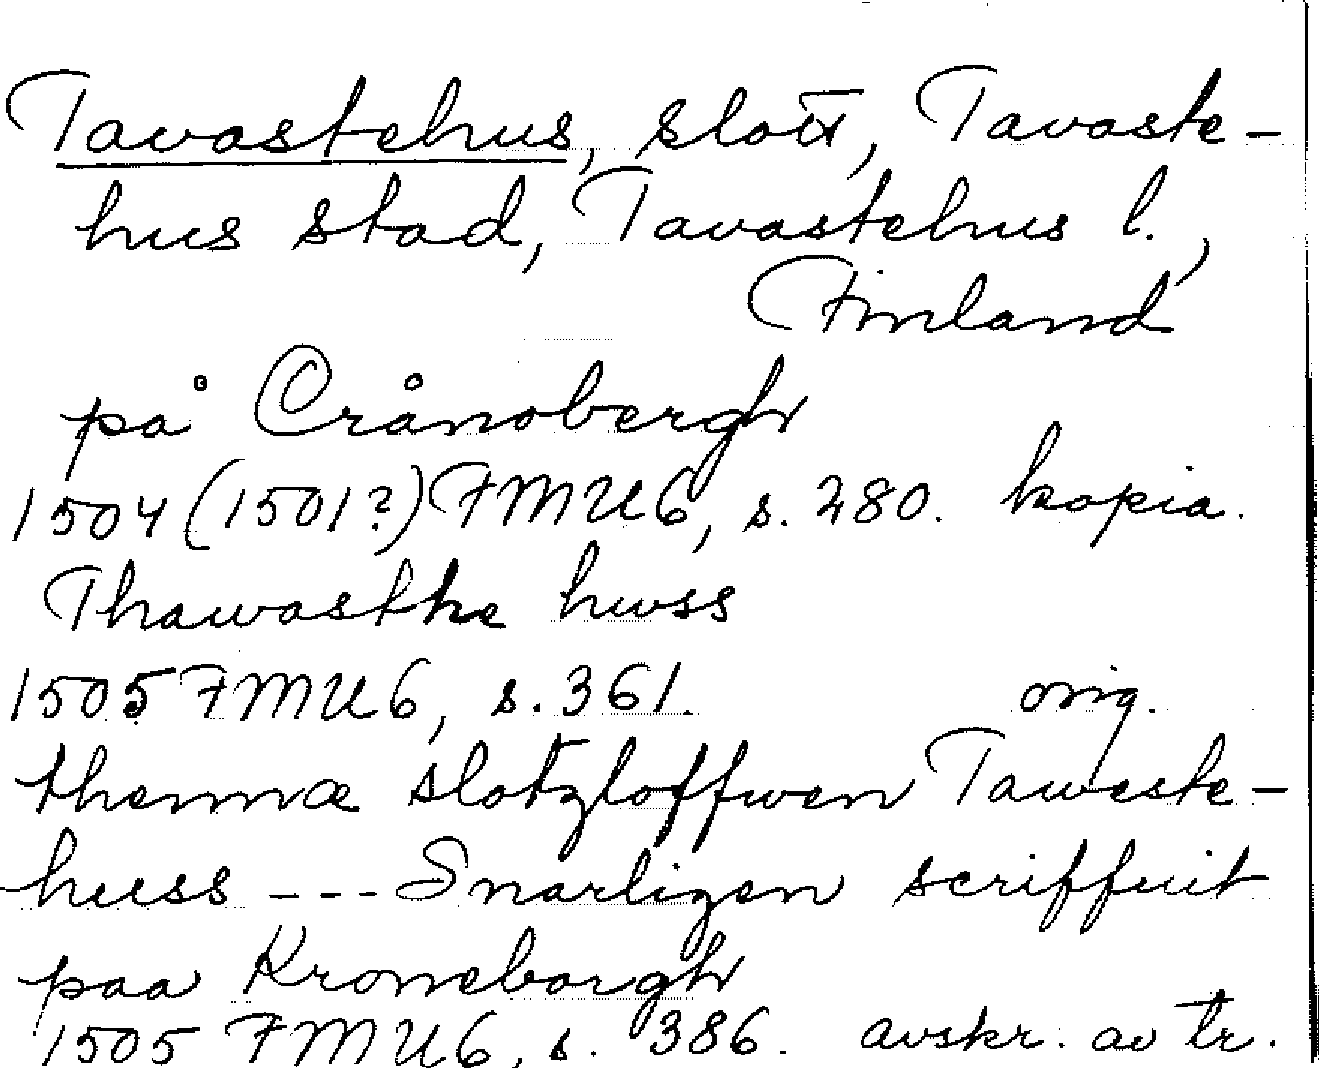 Tavastehus, slott, Tavaste-
hus stad, Tavastehus l.,
Finland
på Crånobergh
1504 (1501?) FMU6, s. 280. kopia.
Thawasthe hwss
1505 FMU6, s. 361. orig.
thennæ slotzloffwen Taweste-
huss --- Snarligen scriffuit
paa Kroneborgh
1505 FMU6, s. 386. avskr. av tr.